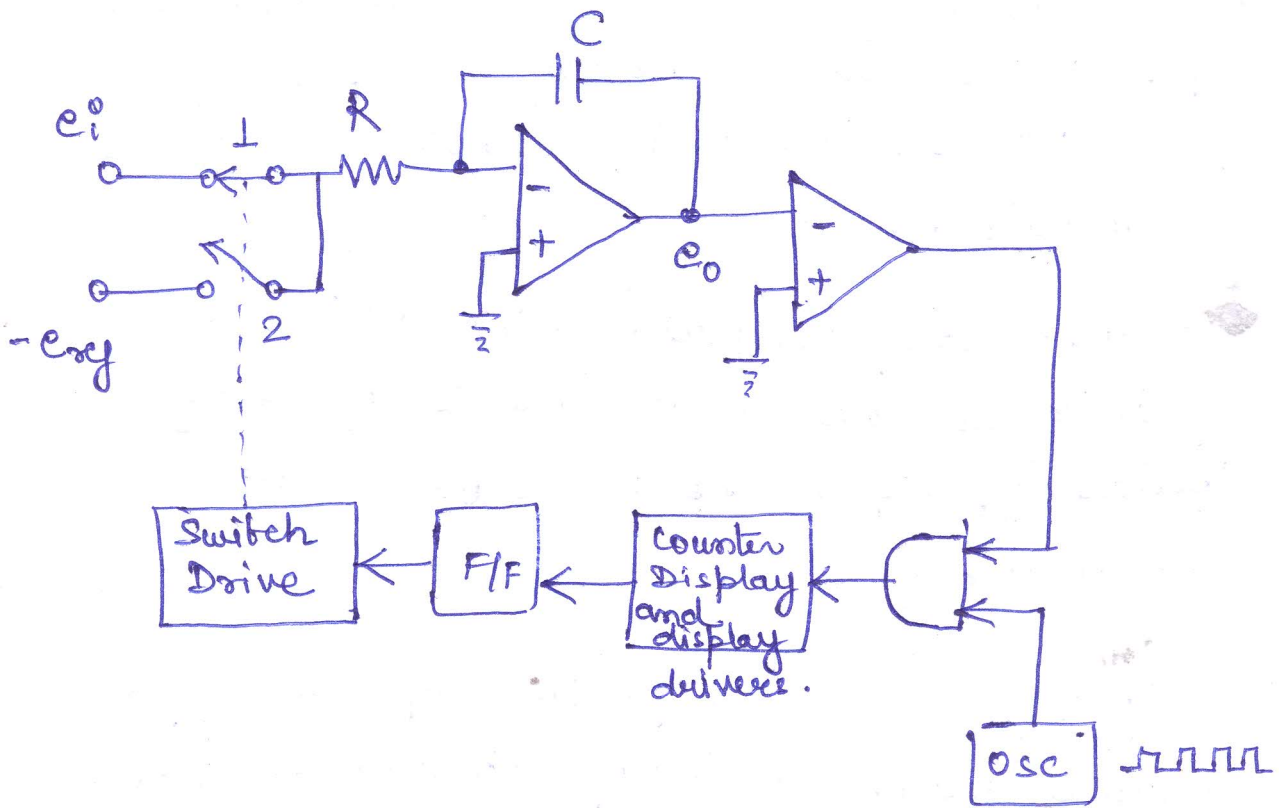 C
R
ei
1
-
+
eo
-
+
2
-eref
Switch
Drive
F/F
Counter
Display
and
display
drivers.
OSC